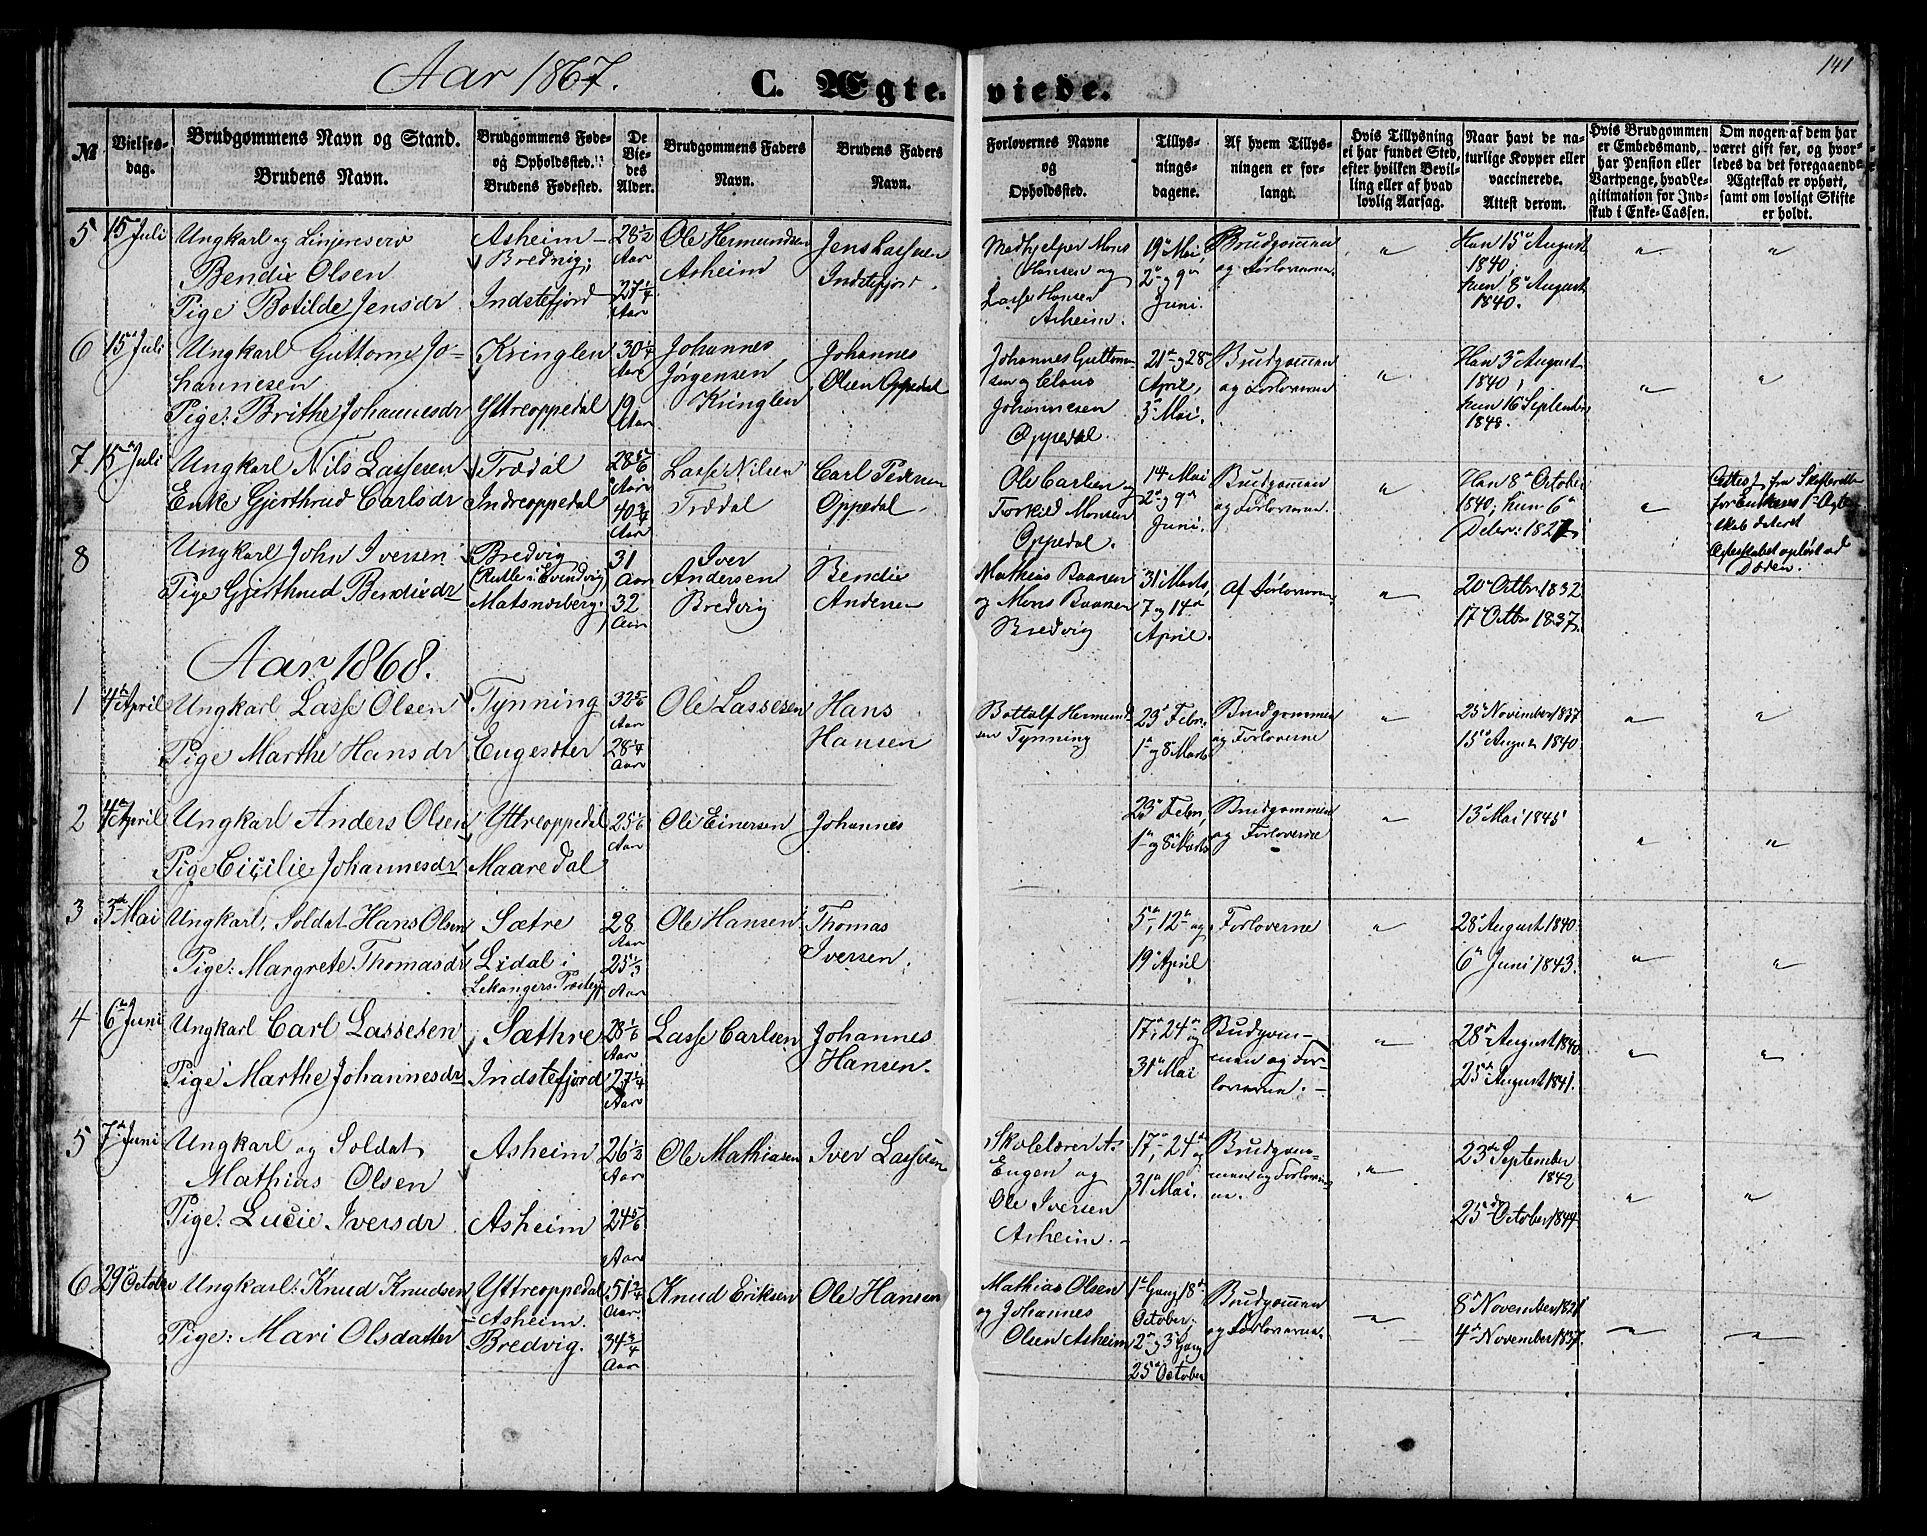 Aar 1867.
C. Ægte-
viede.
141
No
Vielses-
dag.
Brudgommens Navn og Stand.
Brudens Navn.
Brudgommens Føde-
og Opholdssted.
Brudens Fødested.
De
Vie-
des
Alder.
Brudgommens Faders
Navn.
Brudens Faders
Navn.
Forlovernes Navne
og
Opholdssted.
Tillys-
nings-
dagene.
Af hvem Tillys-
ningen er for-
langt.
Hvis Tillysning
ei har fundet Sted,
efter hvilken Bevil-
ling eller af hvad
lovlig Aarsag.
Naar havt de na-
turlige Kopper eller
vaccinerede.
Attest derom.
Hvis Brudgommen
er Embedsmand,
har Pension eller
Vartpenge, hvad Le-
gitimation for Ind-
skud i Enke-Cassen.
Om nogen af dem har
været gift før, og hvor-
ledes da det foregaaende
Ægteskab er ophørt,
samt om lovligt Skifte
er holdt.
5 15 Juli
Ungkarl og Linjereserv
Bendix Olsen
Pige Botilde Jensdr
Asheim -
Bredvig;
Indstefjord
28 1/2
Aar
27 1/4
Aar
Ole Hermundsen
Asheim
Jens Lassesen
Indstefjord
Medhjelper Mons
Hansen og
Lasse Hansen
Asheim.
19 Mai,
2 og 9
Juni.
Brudgomman
og Forloverne.
"
Han 15 August
1840;
hun 8 August
1840.
"
"
6 15 Juli
Ungkarl Guttorm Jo-
hannesen
Pige: Brithe Johannesdr
Kringlen
Yttreoppedal
30 1/4
Aar
19
Aar
Johannes
Jørgensen
Kringlen
Johannes
Olsen Oppedal
Johannes Guttorm-
sen og Claus
Johannesen
Oppedal.
21 og 28
April,
3 Mai.
Brudgomman
og Forloverne
"
Han 3 August
1840;
hun 16 September
1848.
"
"
7 15 Juli
Ungkarl Nils Lassesen
Enke Gjerthrud Carlsdr
Trædal
Indreoppedal
28 5/6
Aar
40 3/4
Aar
Lasse Nilsen
Trædal
Carl Pedersen
Oppedal.
Ole Carlsen og
Torkild Monsen
Oppedal.
14 Mai
2 og 9
Juni
Brudgomman
og Forloverne.
"
Han 8 October
1840; hun 6
Debr: 1827
"
Attest fra Skifteretten
for Enkens 1ste Ægte-
skab dateret
Ægteskabet opløst ved
Døden.
8
Ungkarl John Iversen
Pige Gjerthrud Bendixdr
Bredvig
(Rutle i Evindvig)
Matsnæsberg.
31
Aar
32
Aar
Iver
Andersen
Bredvig
Bendix
Andersen
Mathias Baarsen
og Mons Baarsen
Bredvig
31 Marts,
7 og 14
April.
Af Forloverne
"
20 Octbr 1832
17 Octbr 1837.
Aar 1868.
1 4 April
Ungkarl Lasse Olsen
Pige Marthe Hansdr
Tynning
Engesæter
32 5/6
Aar
28 1/4
Aar
Ole Lassesen
Hans
Hansen
Bottolf Hermund-
sen Tynning
23 Febr,
1 og 8 Marts
Brudgommen
og Forloverne
"
25 November 1837
15 August 1840
"
"
2 4 April
Ungkarl Anders Olsen
Pige Cicilie Johannesdr
Yttreoppedal
Maaredal
25 1/6
Aar
Ole Einersen
Johannes
23 Febr,
1 og 8 Marts
Brudgommen
og Forloverne
"
13 Mai 1845
"
"
3 3 Mai
Ungkarl, Soldat Hans Olsen
Pige: Margrete Thomasdr
Sætre
Lidal i
Lekangers Prstgj
28
Aar
25 1/3
Aar
Ole Hansen
Thomas
Iversen.
5, 12 og
19 April
Forloverne
"
28 August 1840
6 Juni 1843.
"
"
4 6 Juni
Ungkarl Carl Lassesen
Pige Marthe Johannesdr
Sæthre
Indstefjord
28 1/6
Aar
27 1/4
Aar
Lasse Carlsen
Johannes
Hansen.
17, 24 og
31 Mai
Brudgom-
man og For-
loverne. -
"
28 August 1840
25 August 1841.
"
"
5 7 Juni
Ungkarl og Soldat
Mathias Olsen
Pige: Lucie Iversdr
Asheim
Asheim
26 1/3
Aar
24 5/6
Aar
Ole Mathiasen
Iver Lassesen
Skolelærer A.
Engen og
Ole Iversen
Asheim. -
17, 24 og
31 Mai.
Brudgom-
man og Forlover-
ne.
"
23 September
1842
25 October 1844
"
"
6 29 October
Ungkarl: Knud Knudsen
Pige: Mari Olsdatter
Yttreoppedal
- Asheim.
Bredvig.
51 3/4
Aar.
34 3/4
Aar
Knud Eriksen
Ole Hansen
Mathias Olsen
og Johannes
Olsen Asheim
1 Gang 18
October.
2 og 3 Gang
25 October
Brudgomman
og Forloverne.
"
8 November 1821
4 November 1837.
"
"